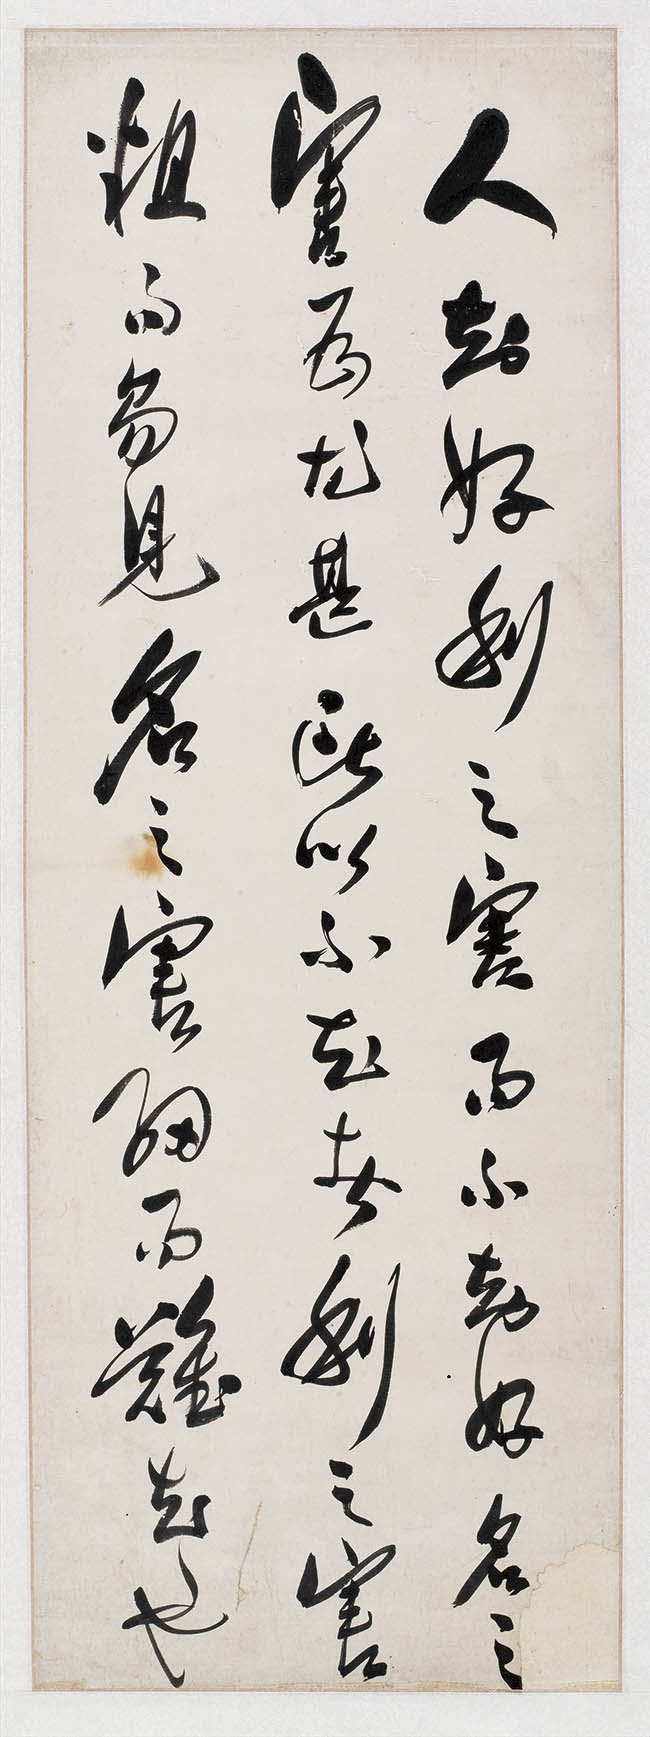 人知好利之害而不知好名之
害為尤甚所以不知者利之害
粗而易見名之害細而難知也